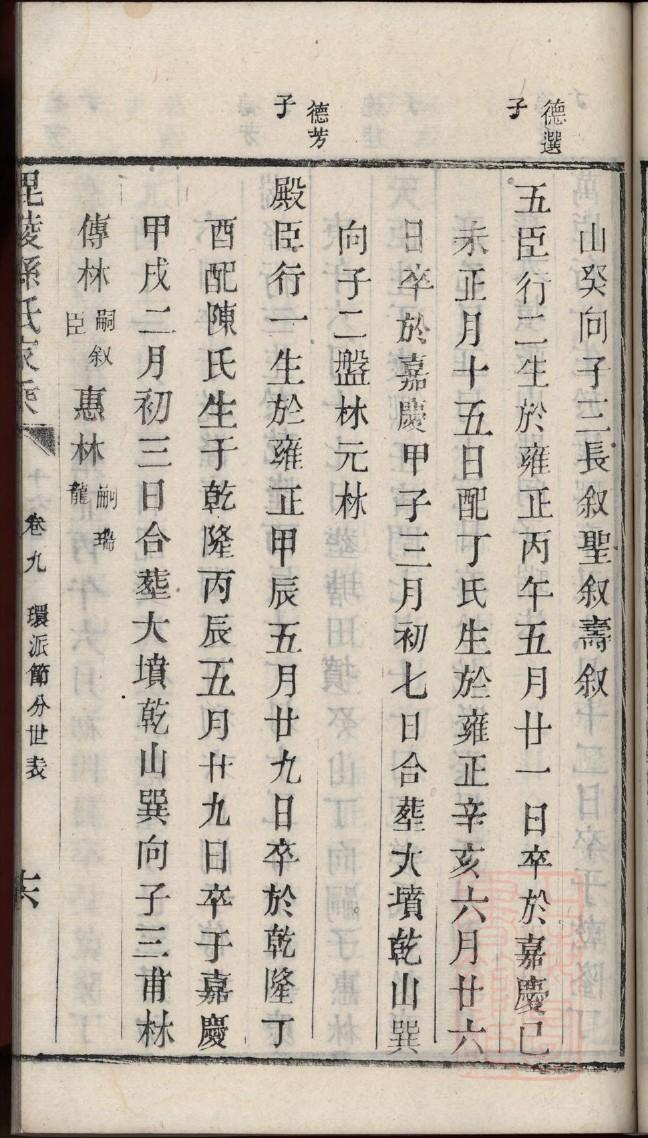 山癸向子三長叙聖叙壽叙
德選
子
五臣行二生於雍正丙午五月廿一日卒於嘉慶己
未正月十五日配丁氏生於雍正辛亥六月廿六
日卒於嘉慶甲子三月初七日合塟大墳乾山巽
向子二盤林元林
德芳
子
殿臣行一生於雍正甲辰五月廿九日卒於乾隆丁
酉配陳氏生于乾隆丙辰五月廿九日卒于嘉慶
甲戌二月初三日合塟大墳乾山巽向子三甫林
傳林嗣叙臣惠林嗣瑞龍
毘陵孫氏家乘 卷九 環派節分世表